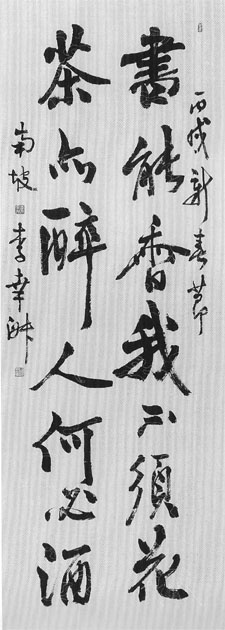 丙戌新春節
書能香我不須花
茶亦醉人何必酒
南坡 李幸